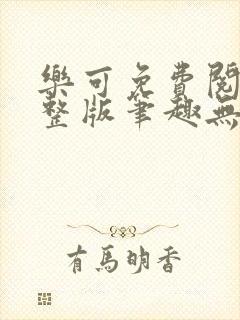 樂可免費閱
整版筆趣無
有馬明香